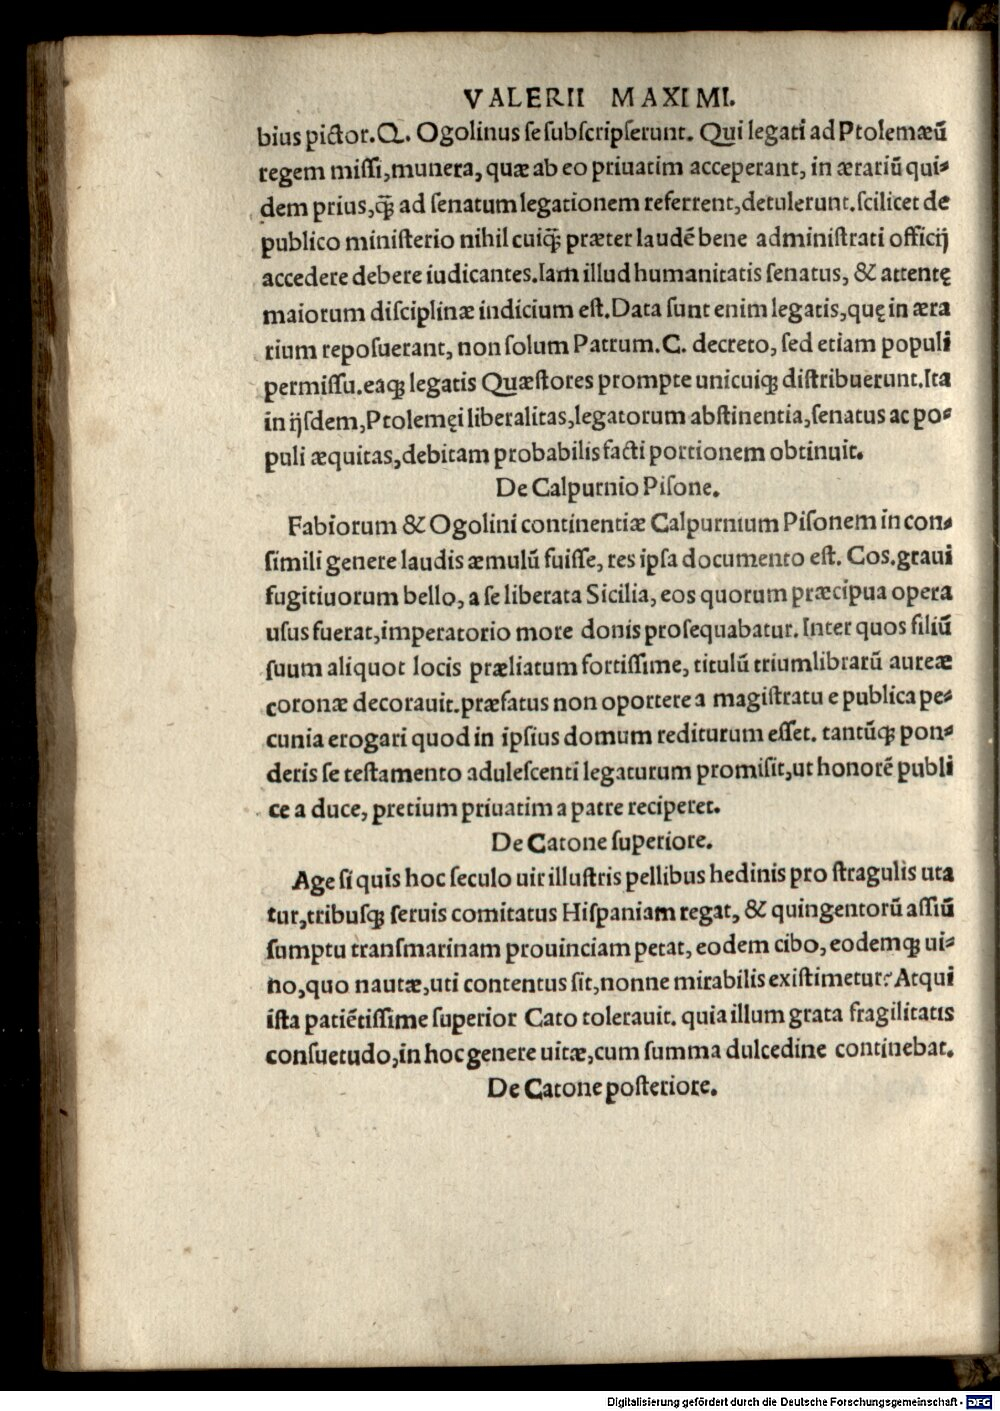 VALERII MAXIMI.
bius pictor. Q. Ogolinus se subscripserunt. Qui legati ad Ptolemæū
regem missi, munera, quæ ab eo priuatim acceperant, in ærariū qui-
dem prius, q̄ꝫ ad senatum legationem referrent, detulerunt. scilicet de
publico ministerio nihil cuiq̄ꝫ præter laudē bene administrati officij
accedere debere iudicantes. Iam illud humanitatis senatus, & attentę
maiorum disciplinæ indicium est. Data sunt enim legatis, quę in æra
rium reposuerant, non solum Patrum. C. decreto, sed etiam populi
permissu. eaqꝫ legatis Quæstores prompte unicuiqꝫ distribuerunt. Ita
in ijsdem, Ptolemęi liberalitas, legatorum abstinentia, senatus ac po-
puli æquitas, debitam probabilis facti portionem obtinuit.
De Calpurnio Pisone.
Fabiorum & Ogolini continentiæ Calpurnium Pisonem in con-
simili genere laudis æmulū fuisse, res ipsa documento est. Cos. graui
fugitiuorum bello, a se liberata Sicilia, eos quorum præcipua opera
usus fuerat, imperatorio more donis prosequabatur. Inter quos filiū
suum aliquot locis præliatum fortissime, titulū triumlibrarū aureæ
coronæ decorauit. præfatus non oportere a magistratu e publica pe-
cunia erogari quod in ipsius domum rediturum esset. tantūqꝫ pon-
deris se testamento adulescenti legaturum promisit, ut honorē publi
ce a duce, pretium priuatim a patre reciperet.
De Catone superiore.
Age si quis hoc seculo uir illustris pellibus hedinis pro stragulis uta
tur, tribusqꝫ seruis comitatus Hispaniam regat, & quingentorū assiū
sumptu transmarinam prouinciam petat, eodem cibo, eodemqꝫ ui-
no, quo nautæ, uti contentus sit, nonne mirabilis existimetur? Atqui
ista patiētissime superior Cato tolerauit. quia illum grata fragilitatis
consuetudo, in hoc genere uitæ, cum summa dulcedine continebat.
De Catone posteriore.
Digitalisierung gefördert durch die Deutsche Forschungsgemeinschaft - DFG